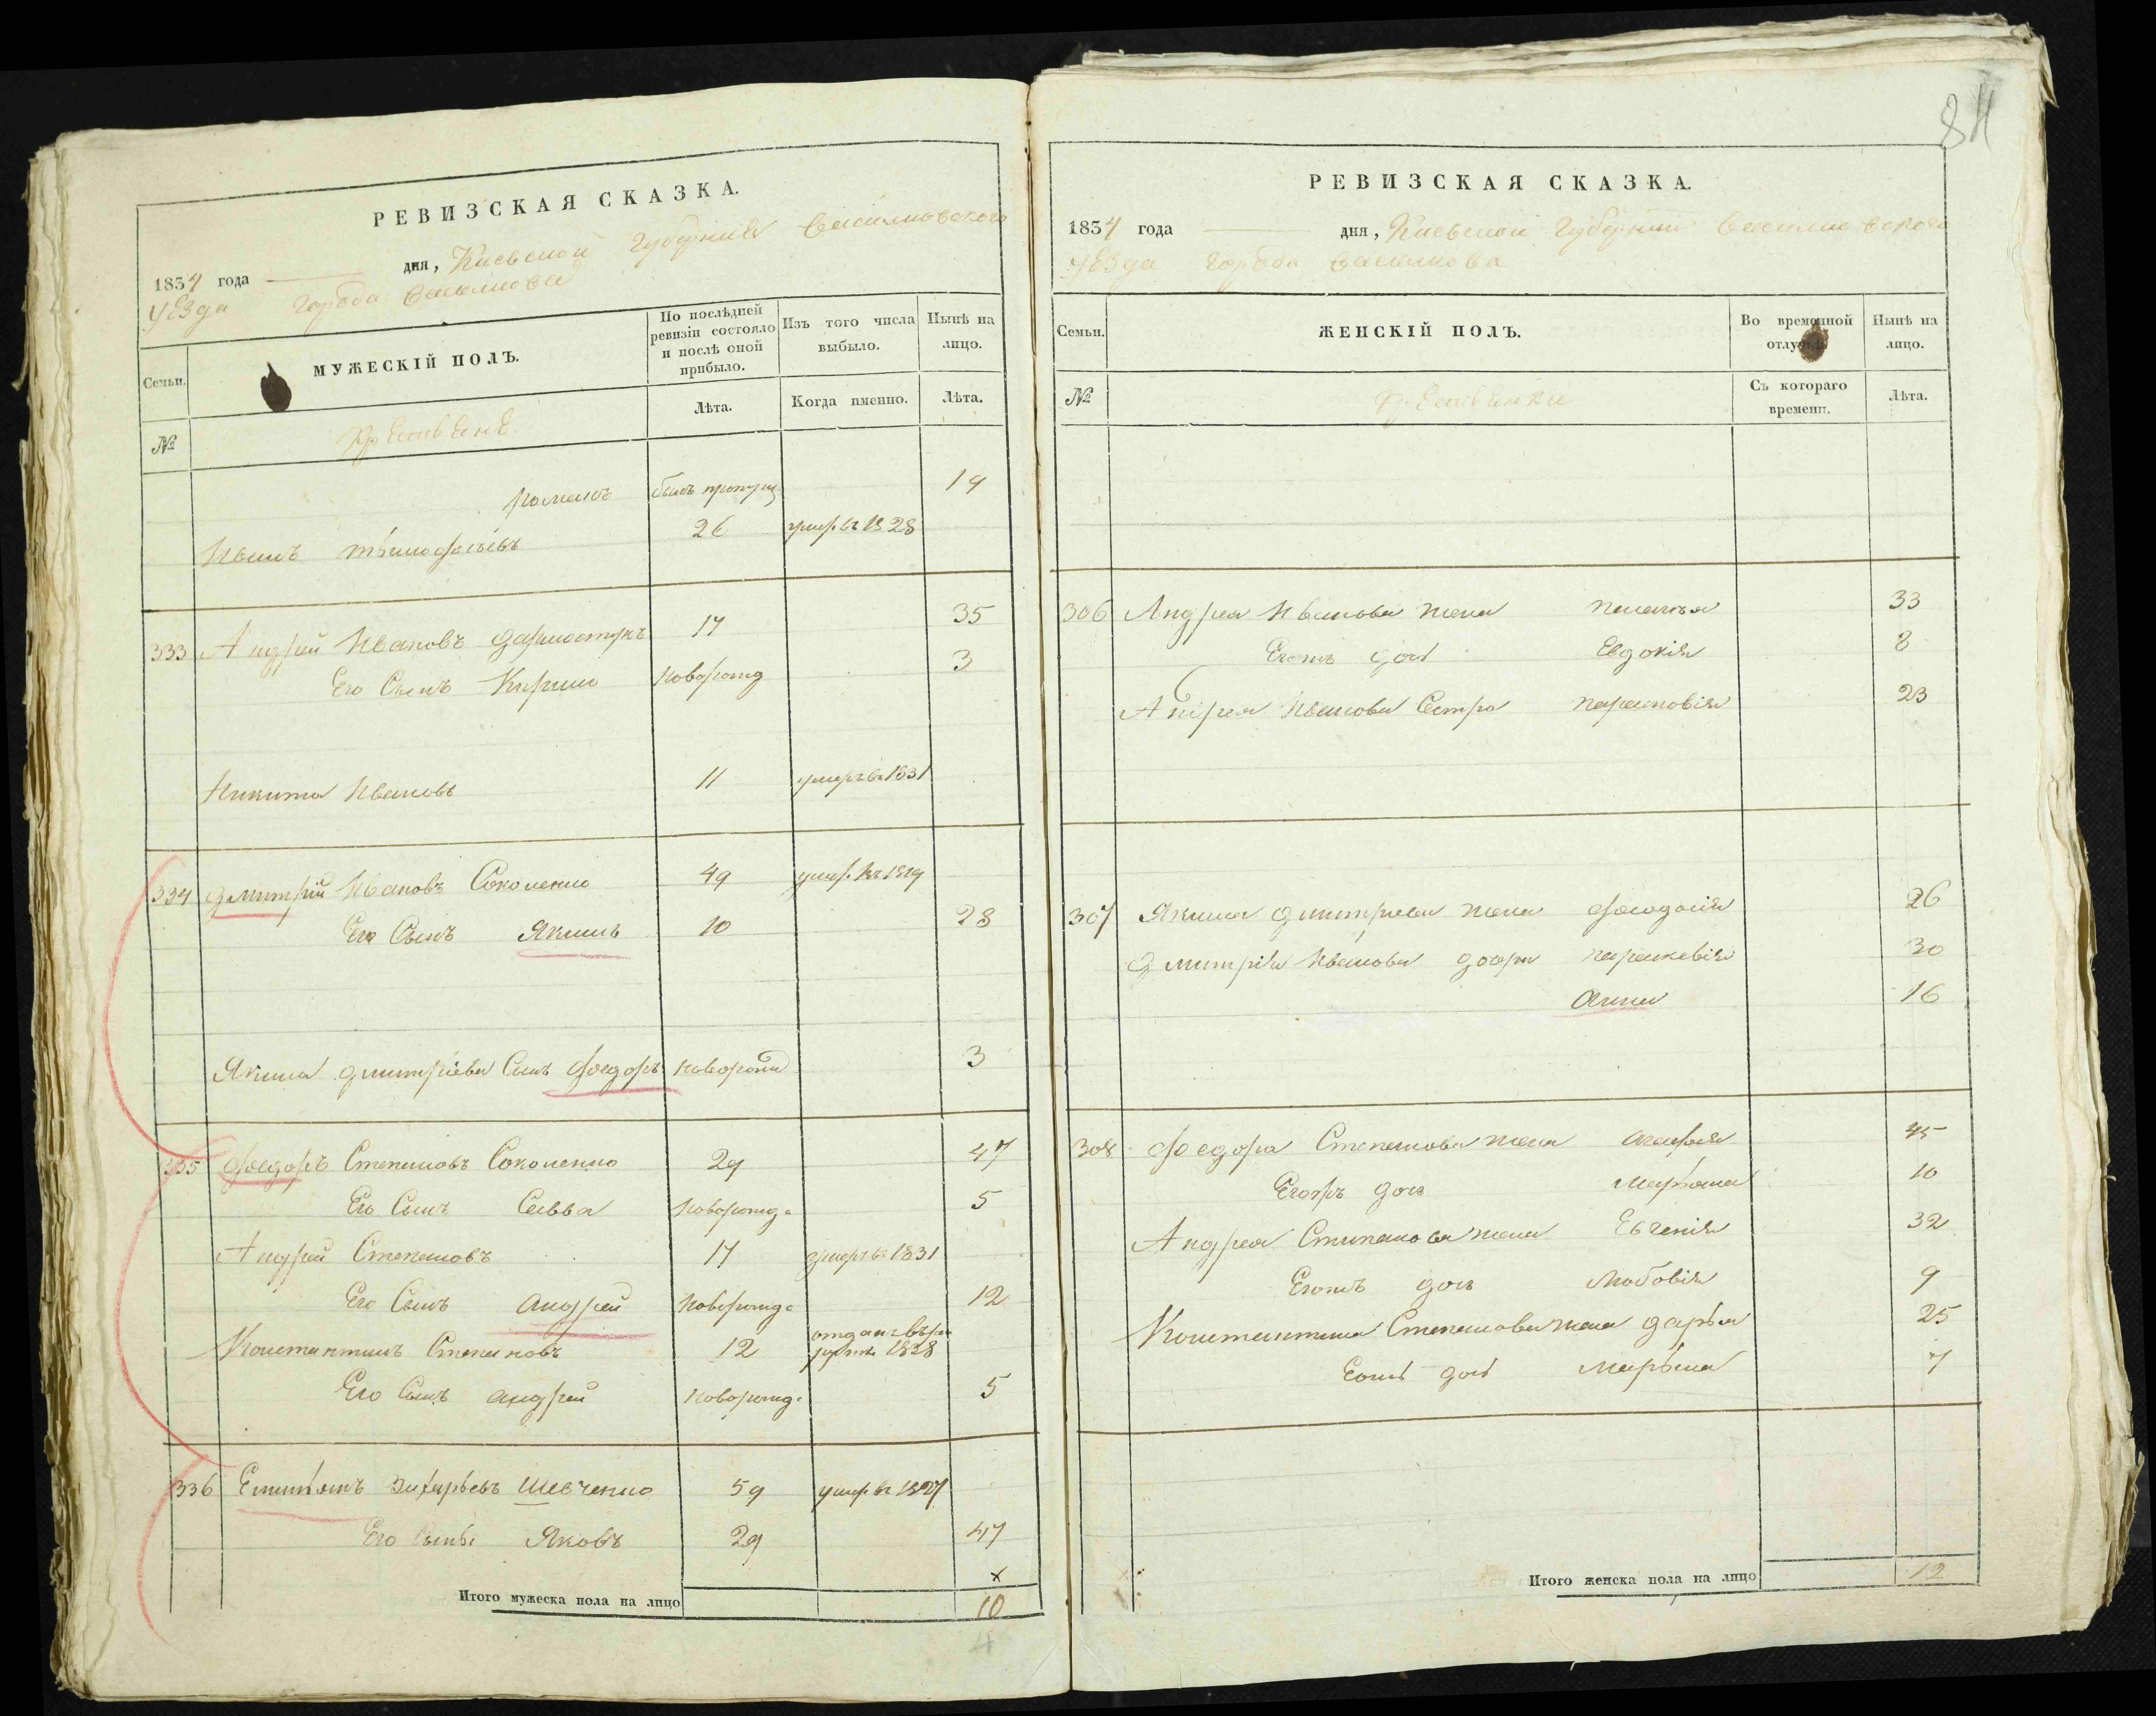 РЕВИЗСКАЯ СКАЗКА.
1834 года дня, Киевской Губернии Васильковского
уезда города Василькова
Семьи. МУЖЕСКІЙ ПОЛЪ. По послѣдней ревизіи состояло и послѣ оной прибыло. Изъ того числа выбыло. Нынѣ на лицо.
№ Лѣта. Когда именно. Лѣта.
романъ былъ пропущ 19
Иванъ тимофеевъ 26 умер. въ 1828
333 Андрей Ивановъ 17 35
Его Сынъ Кирило новорожд 3
Никита Ивановъ 11 умеръ въ 1831
334 дмитрій Ивановъ Соколенко 49 умер. въ 1829
Его Сынъ Якимъ 10 28
Якима дмитріева Сынъ федоръ новорожд 3
335 федоръ Степановъ Соколенко 29 47
Его Сынъ Савва новорожд. 5
Андрей Степановъ 17 умеръ въ 1831
Его Сынъ андрей новорожд. 12
Константинъ Степановъ 12 отданъ въ рекруты 1828
Его Сынъ андрей новорожд. 5
336 Емитянъ Захарьевъ Шевченко 59 умер. въ 1827
Его Сынъ Яковъ 29 47
х
Итого мужеска пола на лицо 10
84
РЕВИЗСКАЯ СКАЗКА.
1834 года дня, Киевской Губернии Васильковского
уезда города Василькова
Семьи. ЖЕНСКІЙ ПОЛЪ. Во временной отлучкѣ. Нынѣ на лицо.
№ Съ котораго времени. Лѣта.
306 Андрея Иванова жена палагъя 33
Евдокія 8
Андрея Иванова Сестра парасковія 23
307 Якима дмитріева жена феодосія 26
Дмитрія Иванова дочери параскевія 30
Анна 16
308 федора Степанова жена агафія 45
марьяна 10
Андрея Степанова жена Евгенія 32
любовія 9
Константина Степанова жена дарья 25
марьяна 7
Итого женска пола на лицо 12